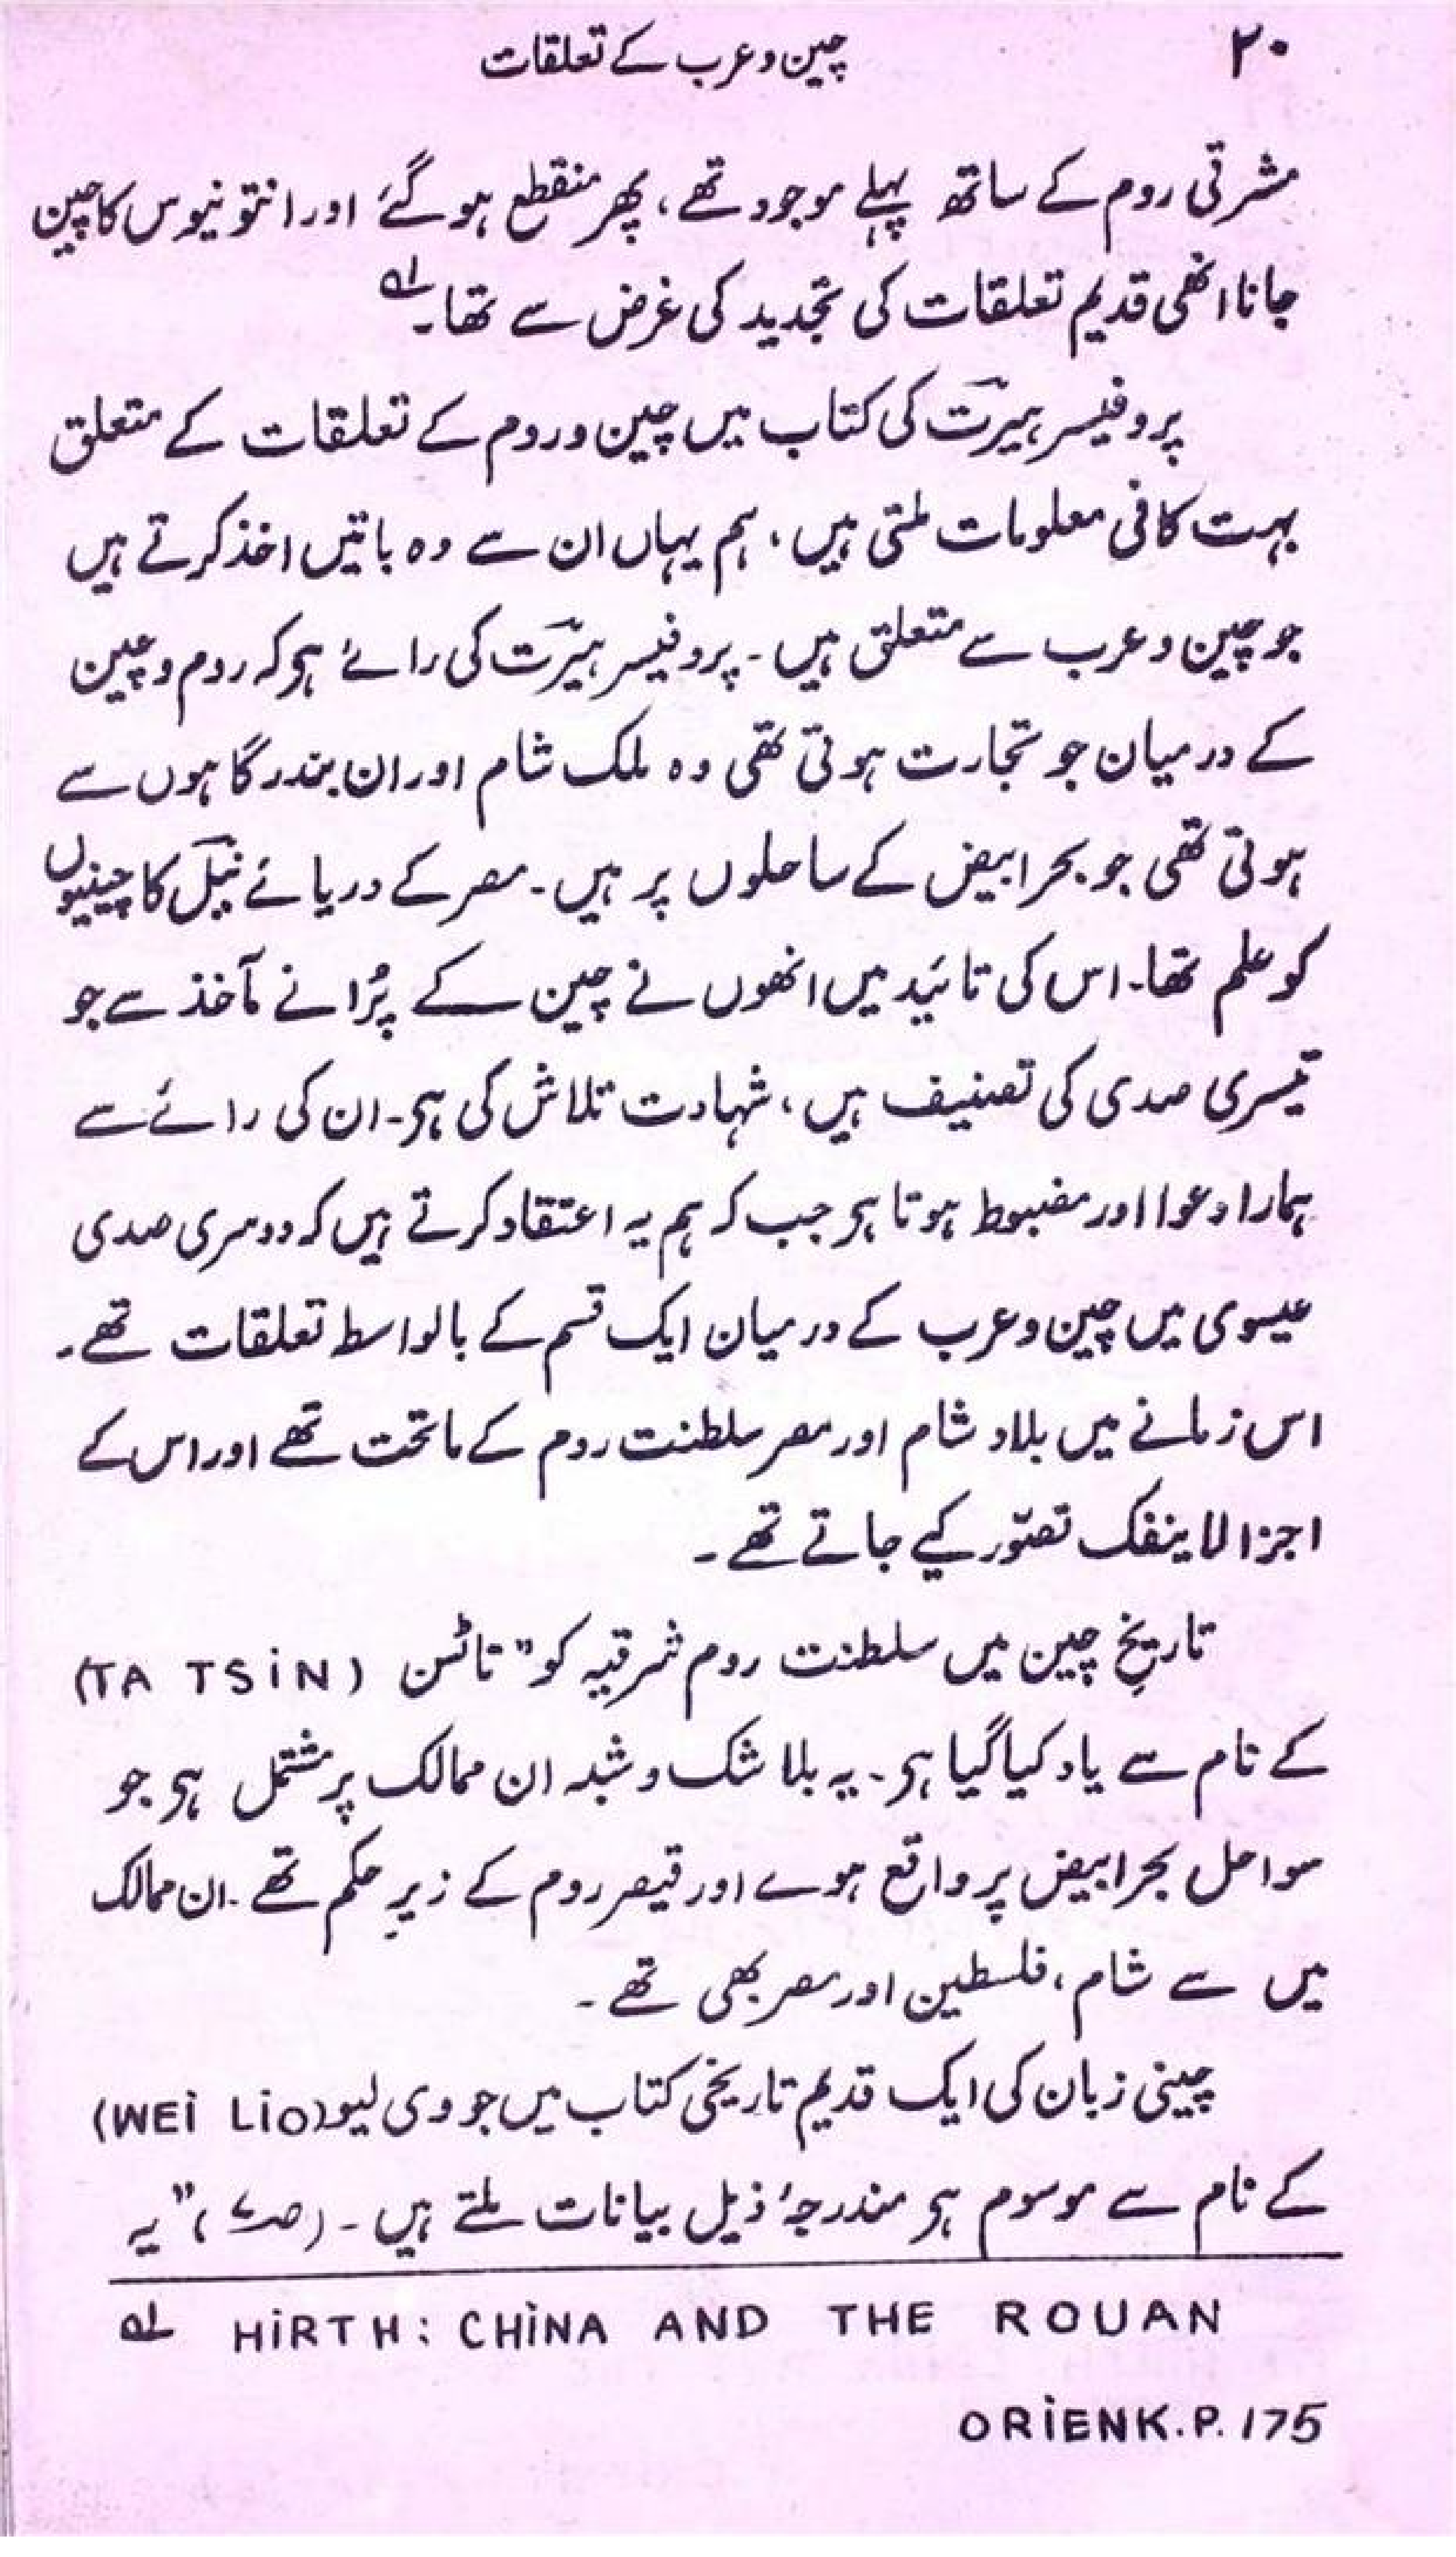 ۲۰ چین و عرب کے تعلقات
مشرقی روم کے ساتھ پہلے موجود تھے، پھر منقطع ہو گئے اور انتونیوس کا چین
جانا انھی قدیم تعلقات کی تجدید کی غرض سے تھا۔ لہ
پروفیسر ہیرت کی کتاب میں چین و روم کے تعلقات کے متعلق
بہت کافی معلومات ملتی ہیں، ہم یہاں ان سے وہ باتیں اخذ کرتے ہیں
جو چین و عرب سے متعلق ہیں۔ پروفیسر ہیرت کی رائے ہو کہ روم و چین
کے درمیان جو تجارت ہوتی تھی وہ ملک شام اور ان بندرگاہوں سے
ہوتی تھی جو بحر ابیض کے ساحلوں پر ہیں۔ مصر کے دریائے نیل کا چینیوں
کو علم تھا۔ اس کی تائید میں انھوں نے چین کے پُرانے مآخذ سے جو
تیسری صدی کی تصنیف ہیں، شہادت تلاش کی ہو۔ ان کی رائے سے
ہمارا دعوا اور مضبوط ہوتا ہو جب کہ ہم یہ اعتقاد کرتے ہیں کہ دوسری صدی
عیسوی میں چین و عرب کے درمیان ایک قسم کے بالواسط تعلقات تھے۔
اس زمانے میں بلاد شام اور مصر سلطنت روم کے ماتحت تھے اور اس کے
اجزا لاینفک تصوّر کیے جاتے تھے۔
تاریخِ چین میں سلطنت روم شرقیہ کو " تاٹسن (TA TSiN)
کے نام سے یاد کیا گیا ہو۔ یہ بلا شک و شبہ ان ممالک پر مشتمل ہو جو
سواحل بحر ابیض پر واقع ہوے اور قیصر روم کے زیرِ حکم تھے۔ ان ممالک
میں سے شام، فلسطین اور مصر بھی تھے۔
چینی زبان کی ایک قدیم تاریخی کتاب میں جو وی لیو (WEi LiO)
کے نام سے موسوم ہو مندرجۂ ذیل بیانات ملتے ہیں۔ "یہ
لہ HiRTH: CHiNA AND THE ROUAN
ORiENK.P.175